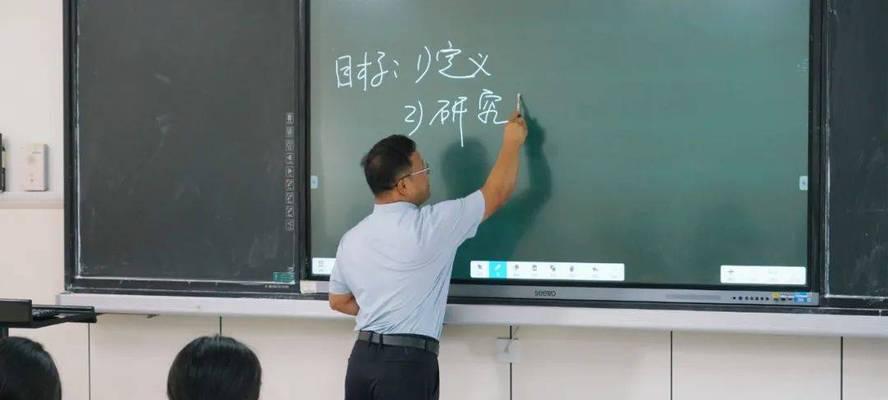 目标：1)定义
2)研究
seewo